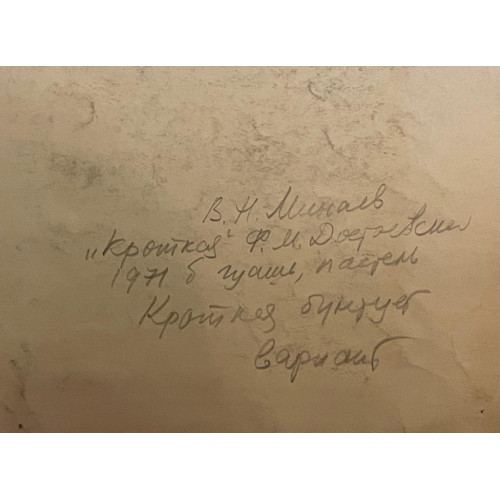 В. Н. Минаев
„Кроткая“ Ф. М. Достоевский
1971 б гуашь, пастель
Кроткая бунтует
вариант